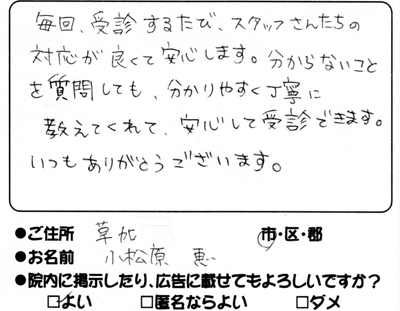 毎回、受診するたび、スタッフさんたちの
対応が良くて安心します。分からないこと
を質問しても、分かりやすく丁寧に
教えてくれて、安心して受診できます。
いつもありがとうございます。
●ご住所 草加 市・区・郡
●お名前 小松原 恵
●院内に掲示したり、広告に載せてもよろしいですか?
□よい □匿名ならよい □ダメ